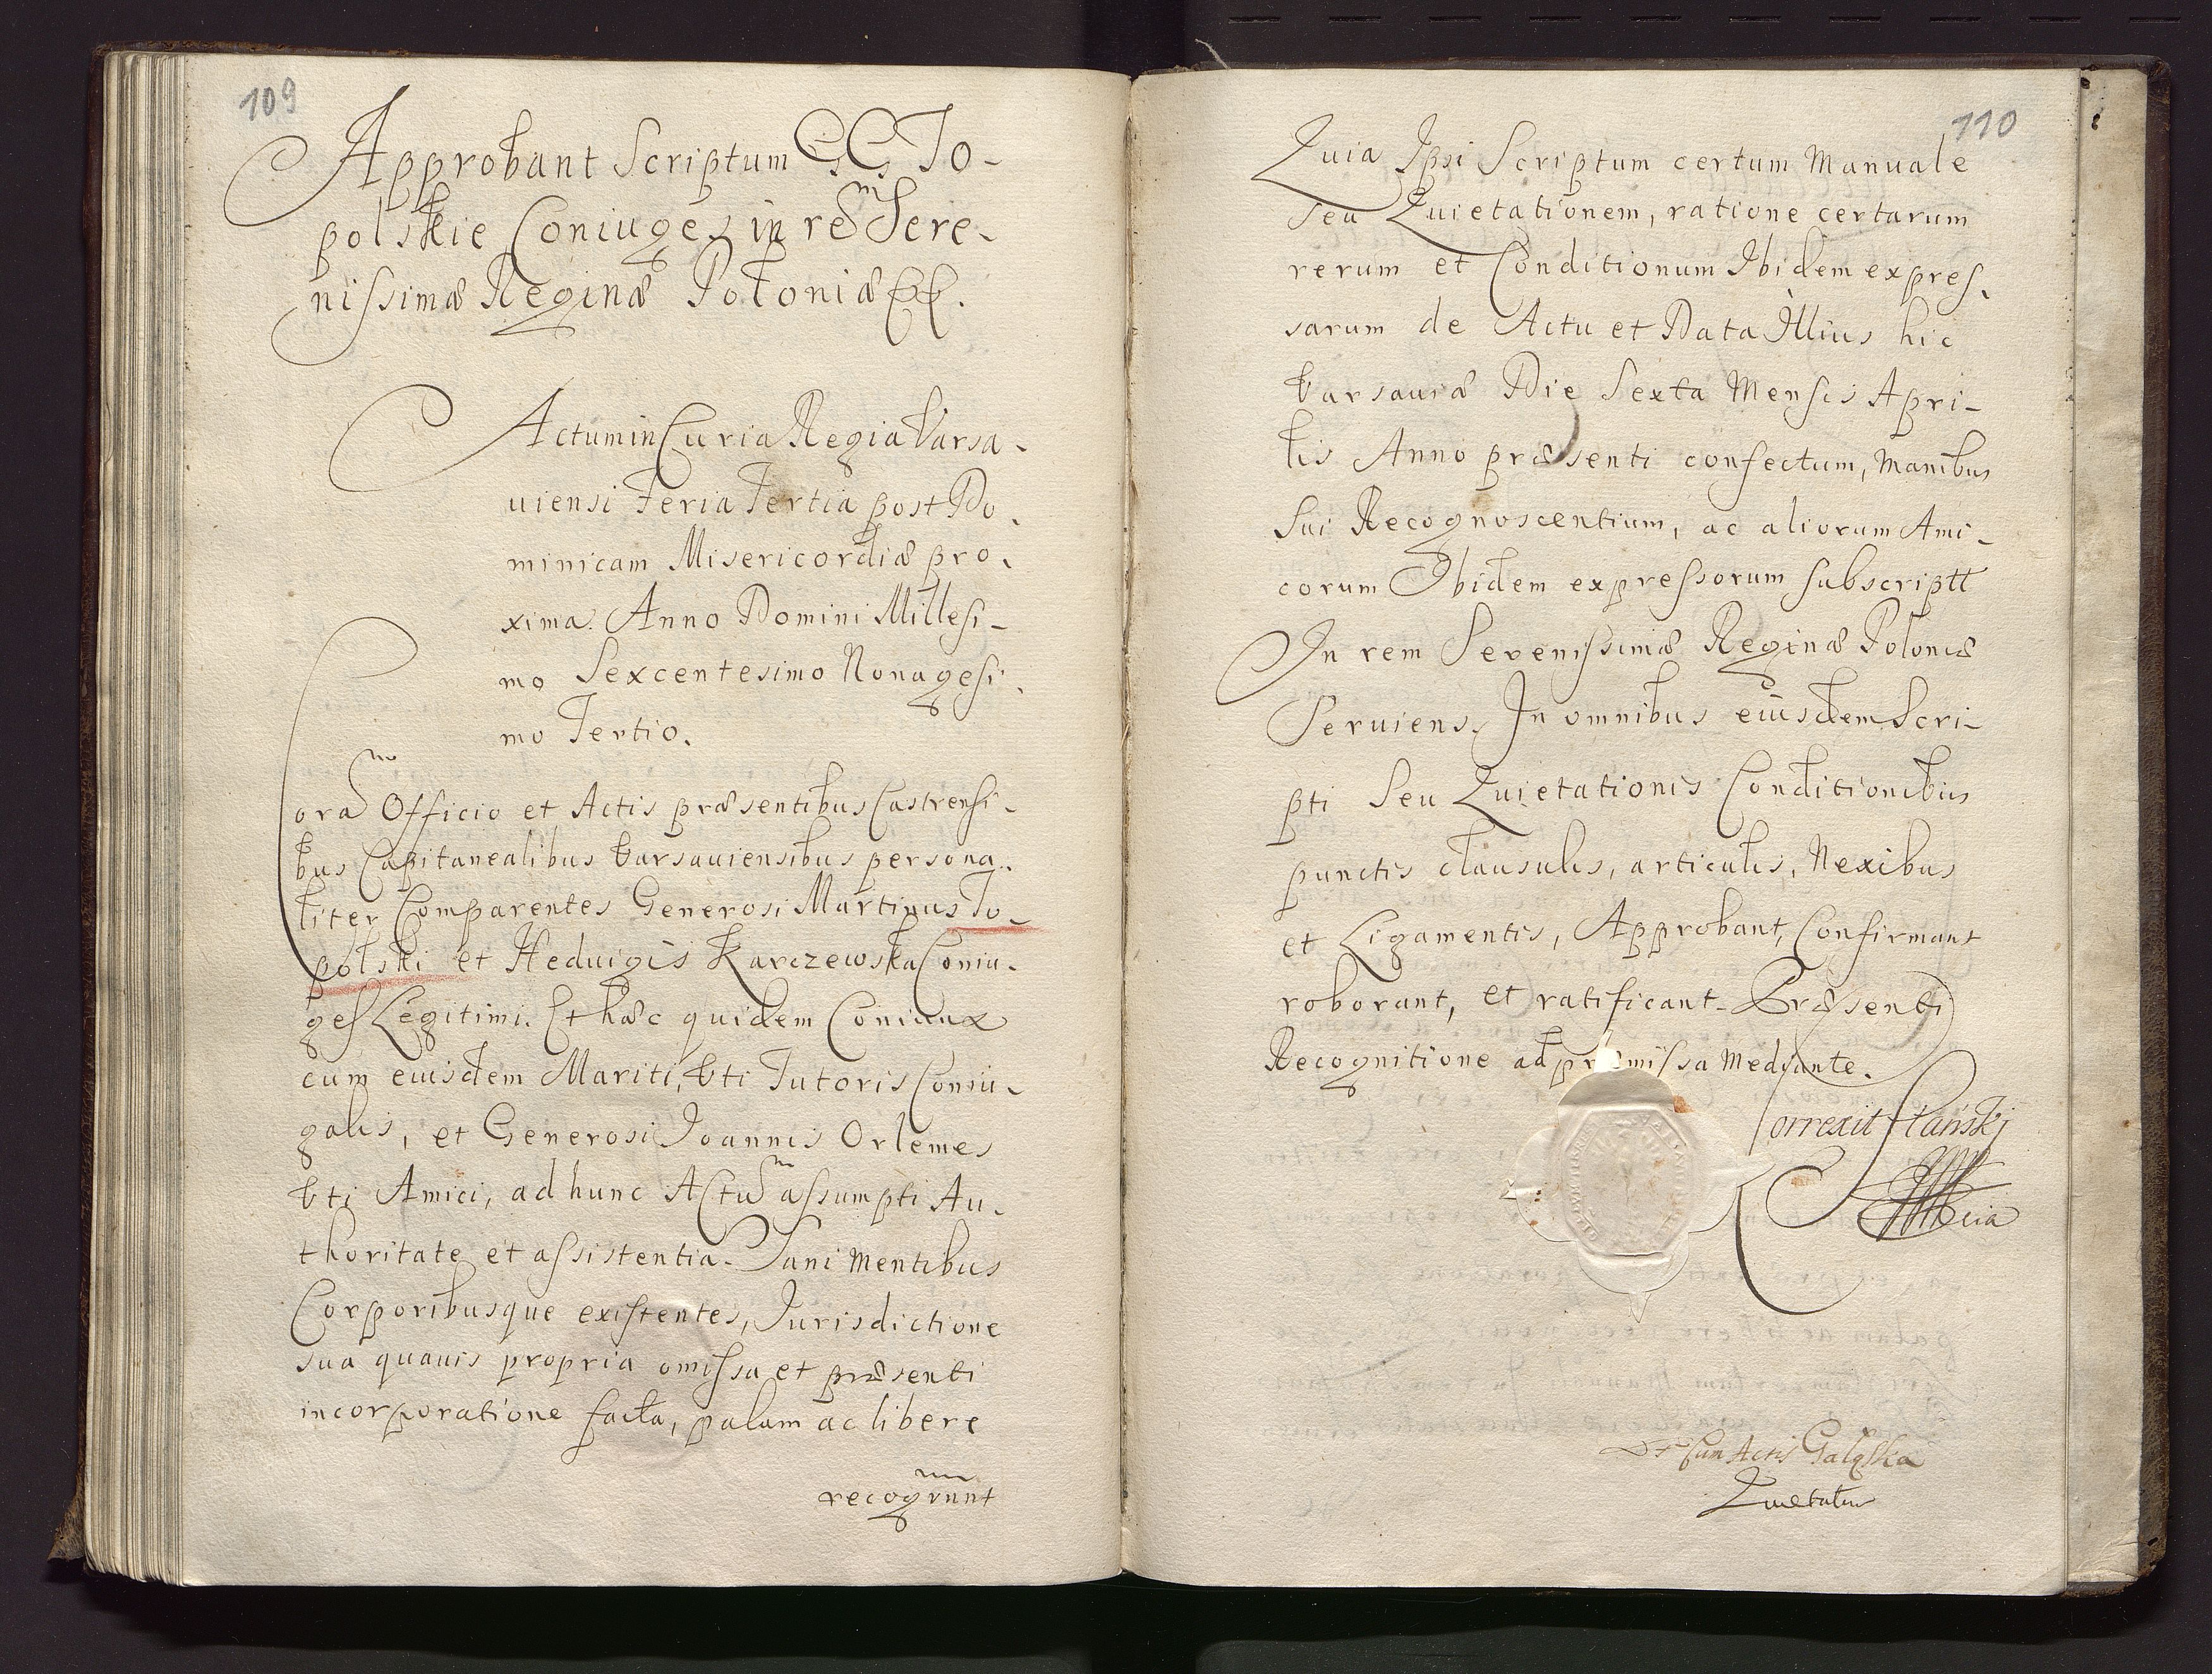 109
Approbant Scriptum GG To-
polskie Coniuges in rem Sere-
nissimæ Reginæ Poloniæ
Actum in Curia Regia Varsa-
uiensi Feria Tertia post Do-
minicam Misericordiæ pro-
xima. Anno Domini Millesi-
mo Sexcentesimo Nonagesi-
mo Tertio.
Coram Officio et Actis præsentibus Castrensi-
bus Capitanealibus Varsauiensibus persona-
liter Comparentes Generosi Martinus To-
polski et Heduigis Karczewska Coniu-
ges Legitimi. Et hæc quidem Coniunx
cum eiusdem Mariti, Vti Tutoris Coniu-
galis, et Generosi Joannis Orlemes
Vti Amici, ad hunc Actum assumpti Au-
thoritate et assistentia. Sani Mentibus
Corporibusque existentes, Jurisdictione
sua quauis propria omissa et præsenti
incorporatione facta, palam ac libere
recogrunt
110
Quia Ipsi Scriptum certum Manuale
seu Quietationem, ratione certarum
rerum et Conditionum Ibidem expres-
sarum de Actu et Data Illius hic
Varsauiæ Die Sexta Mensis Apri-
lis Anno præsenti confectum, Manibus
Sui Recognoscentium, ac aliorum Ami-
corum Ibidem expressorum subscriptt
In rem Serenissimæ Reginæ Poloniæ
Seruiens. In omnibus eiusdem Scri-
pti Seu Quietationis Conditionibus
punctis clausulis, articulis, Nexibus
et Ligamentis, Approbant, Confirmant
roborant, et ratificant. Præsenti
Recognitione ad præmissa Mediante.
Correxit
Cum Actis